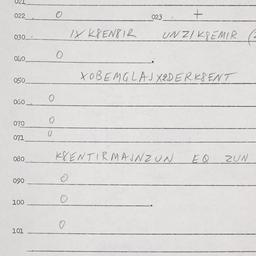 021
022 0 023 +
030 IX K8EN8IR UNZIK8EMIR (
040 0
050 XOBEMGLAJX2DERK8ENT
060 0
070 0
071 0
080 K8ENTIRMAJNZUN EQ ZUN
090 0
100 0
101 0